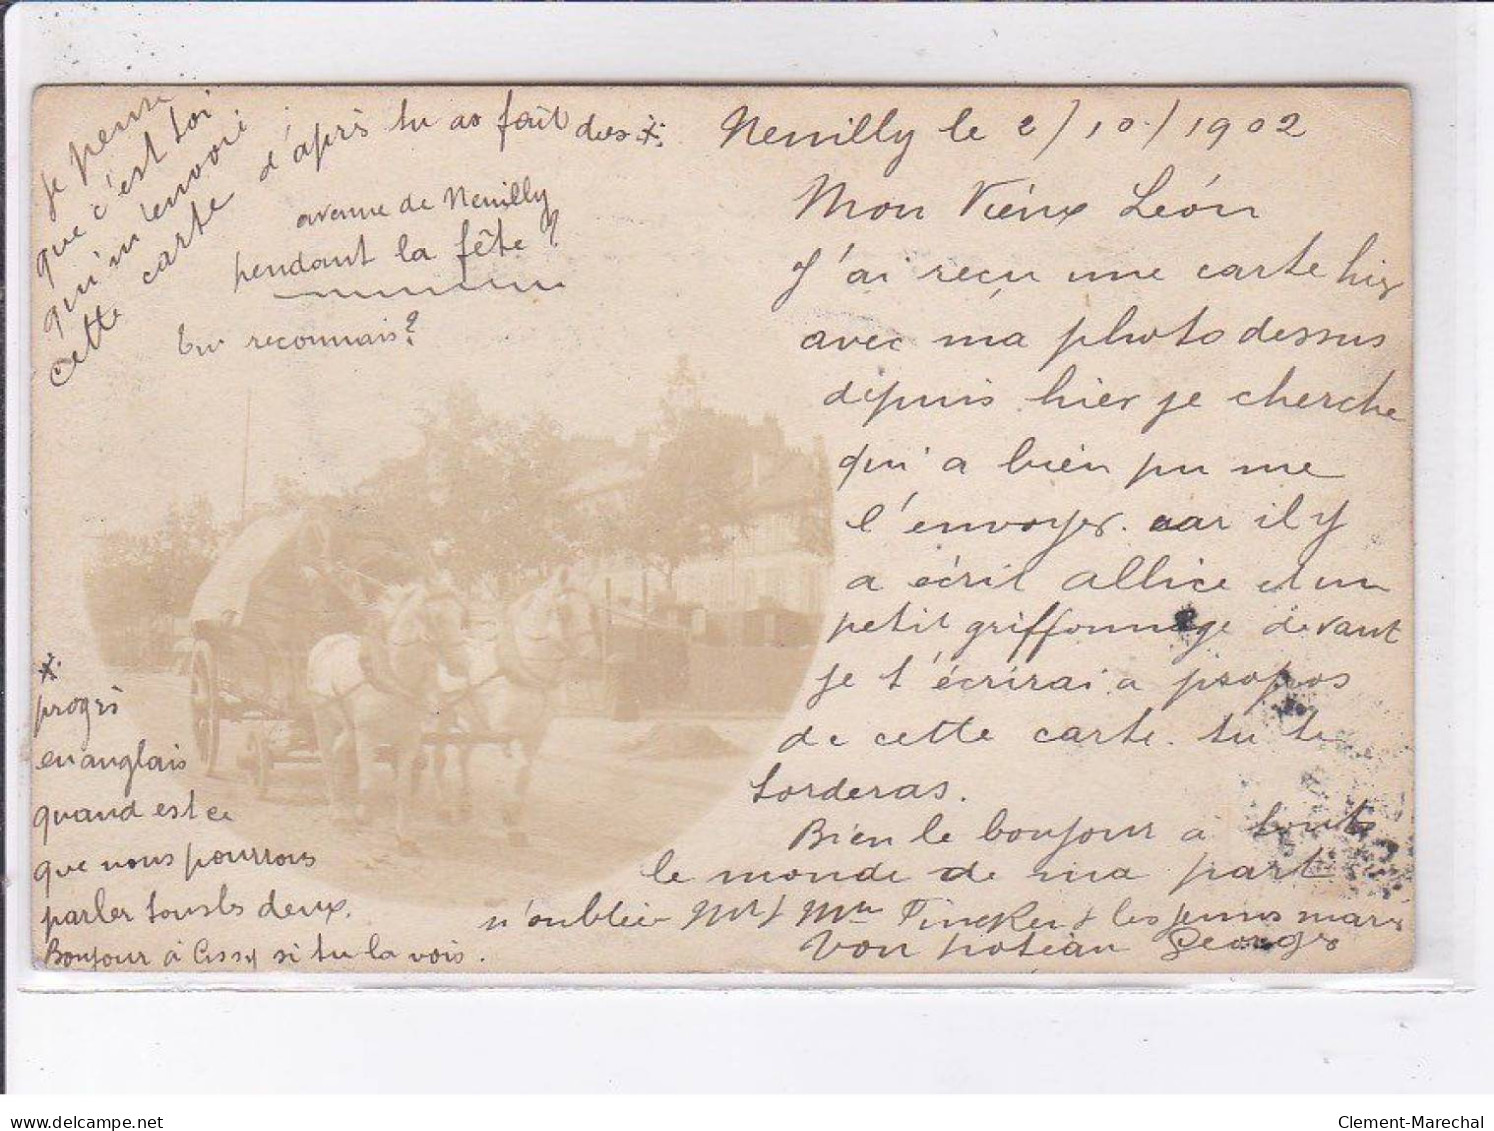 Neuilly le 2/10/1902
Mon Vieux Léon
J'ai reçu une carte hier
avec ma photo dessus
depuis hier je cherche
qui a bien pu me
l'envoyer. car il y
a écrit allice et un
petit griffonnage devant
je t'écrirai a propos
de cette carte. tu te
torderas.
Bien le bonjour a tout
le monde de ma part
n'oublie Mr & Mme & les jeunes mariés
Georges
je pense
que c'est toi
qui m'envoi
cette carte d'après tu as fait des *
avenue de Neuilly
pendant la fête ?
tu reconnais ?
*
progrès
en anglais
quand est ce
que nous pourrons
parler tous les deux.
Bonjour à Cissy si tu la vois.
delcampe.net
Clement-Marechal